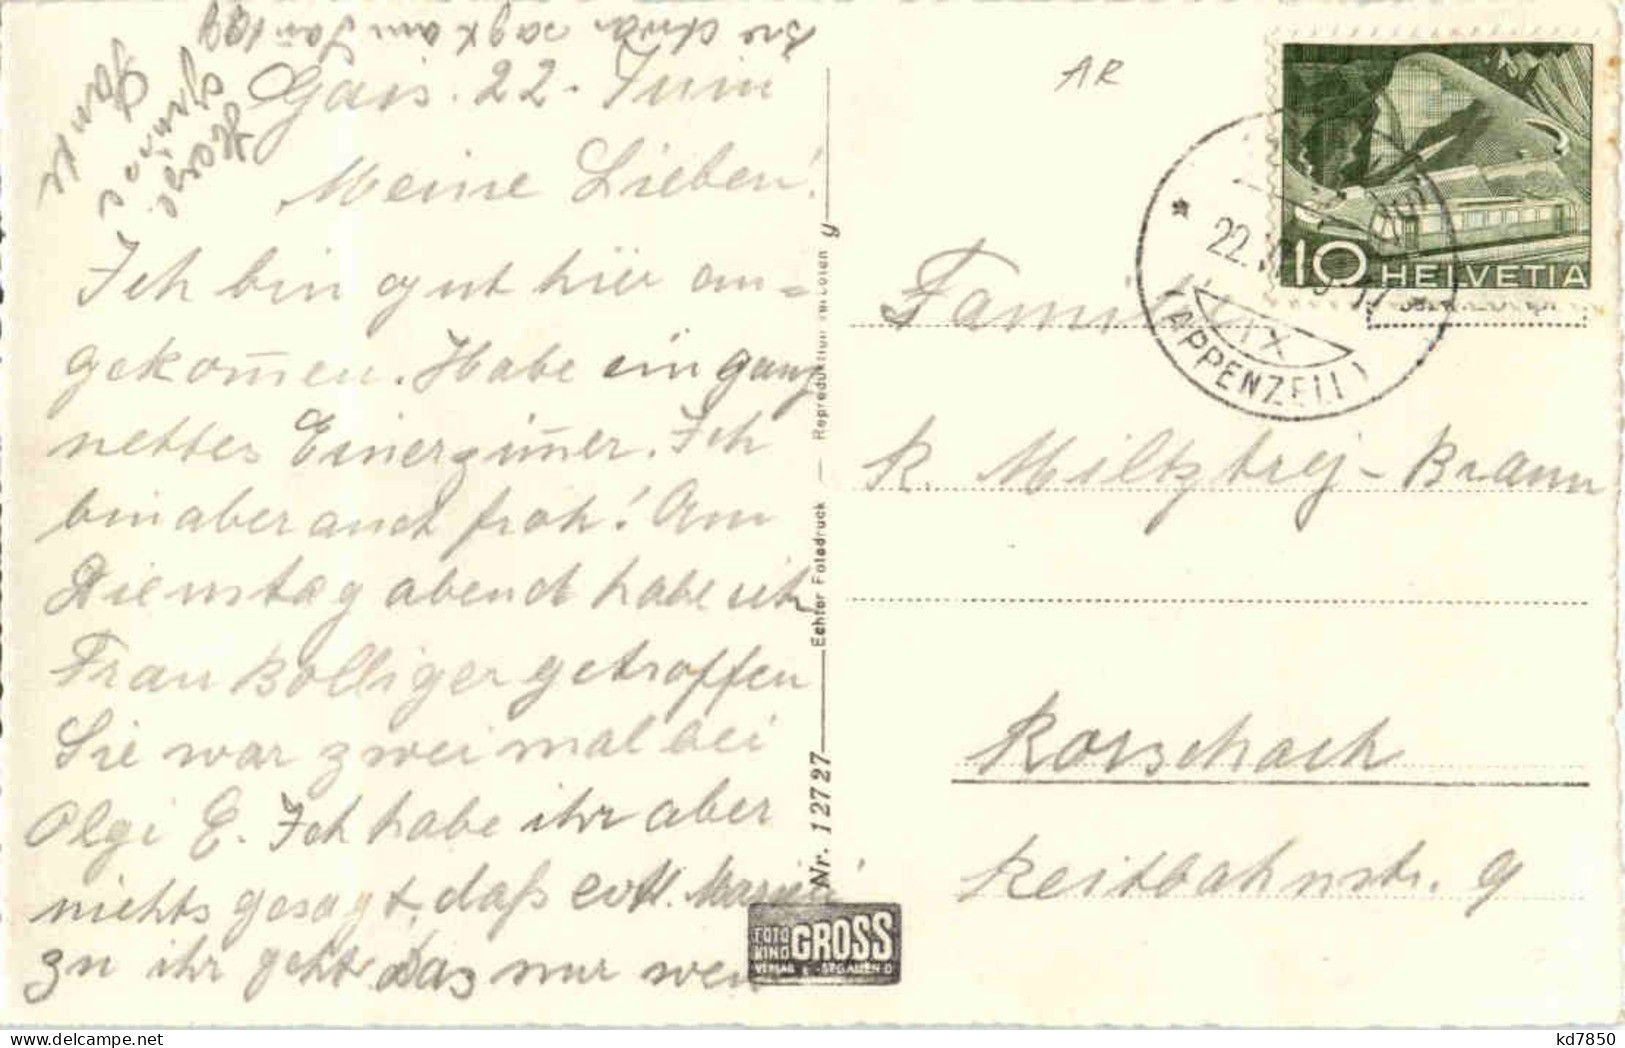 Gais. 22. Juni
Meine Lieben!
Ich bin gut hier an=
gekom̄en. Habe ein ganz
nettes Einerzim̄er. Ich
bin aber auch froh! Am
Dienstag abend habe ich
Frau Bolliger getroffen
Sie war zweimal bei
Olgi E. Ich habe ihr aber
nichts gesagt, daß evtl.
zu ihr geht. Das nur wen
Herzliche
Grüsse
sagt
Nr. 12727
Echter Fotodruck — Reproduktion verboten
FOTO
KINO
GROSS
VERLAG ST.GALLEN O
AR
10 HELVETIA
22.
(APPENZELL)
Familie
K. -Braun
Rorschach
Reitbahnstr. 9
kd7850